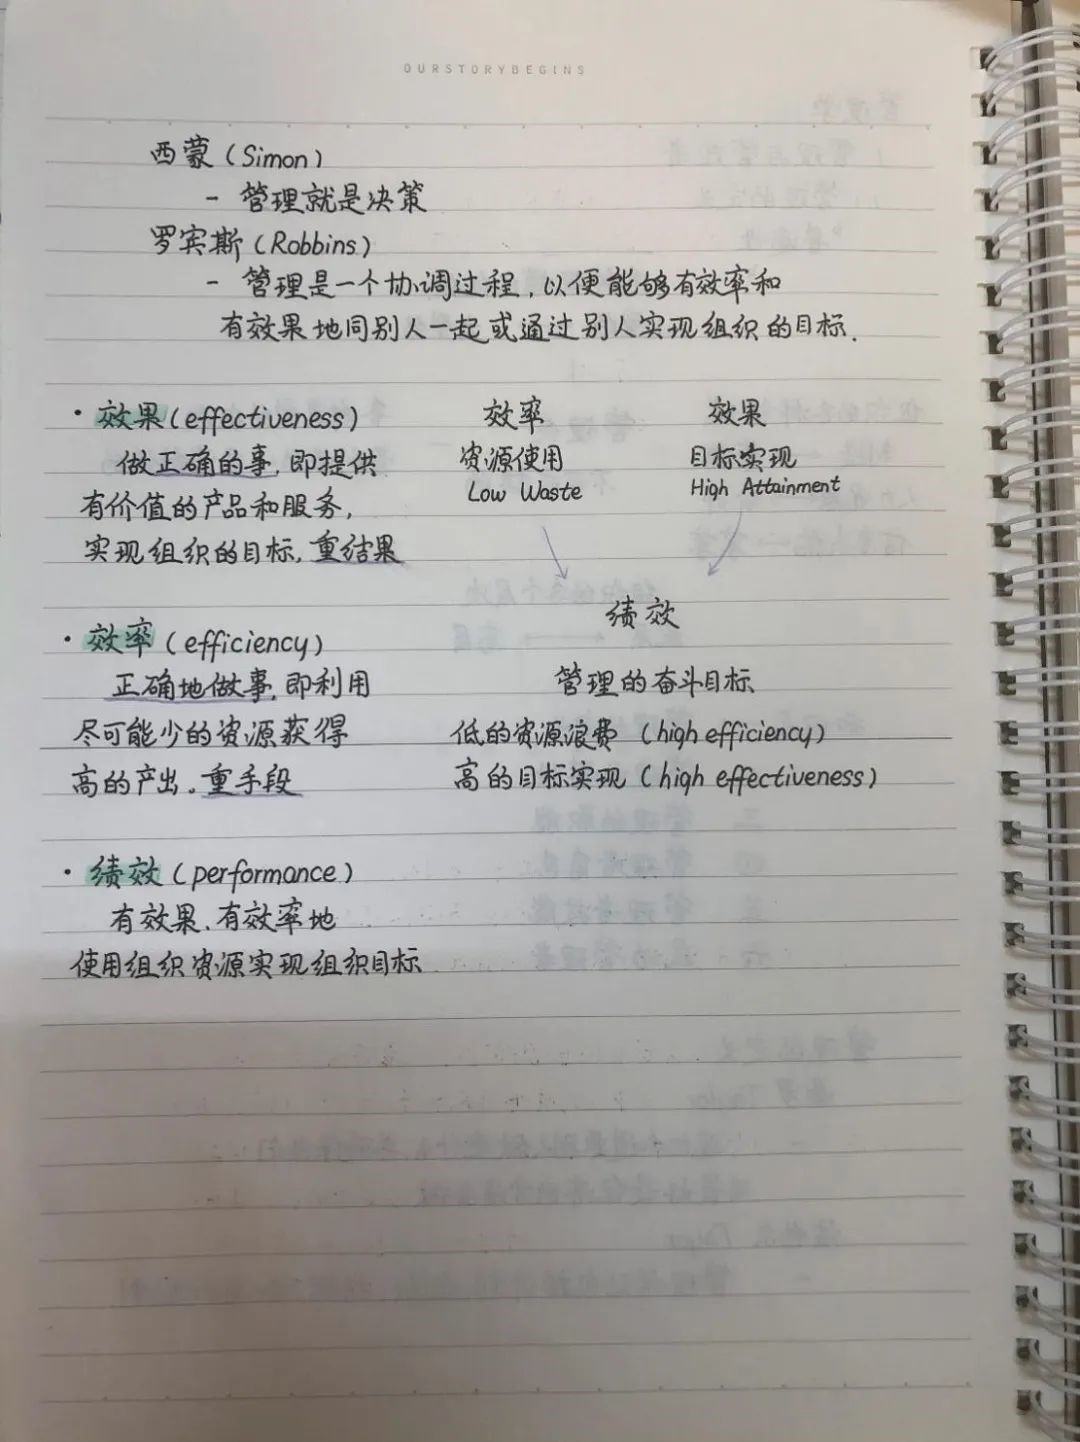 OURSTORYBEGINS
西蒙（Simon）
- 管理就是决策
罗宾斯（Robbins）
- 管理是一个协调过程，以便能够有效率和
有效果地同别人一起或通过别人实现组织的目标.
· 效果（effectiveness）
做正确的事，即提供
有价值的产品和服务，
实现组织的目标，重结果
· 效率（efficiency）
正确地做事，即利用
尽可能少的资源获得
高的产出。重手段
· 绩效（performance）
有效果、有效率地
使用组织资源实现组织目标
效率 效果
资源使用 目标实现
Low Waste High Attainment
绩效
管理的奋斗目标
低的资源浪费（high efficiency）
高的目标实现（high effectiveness）